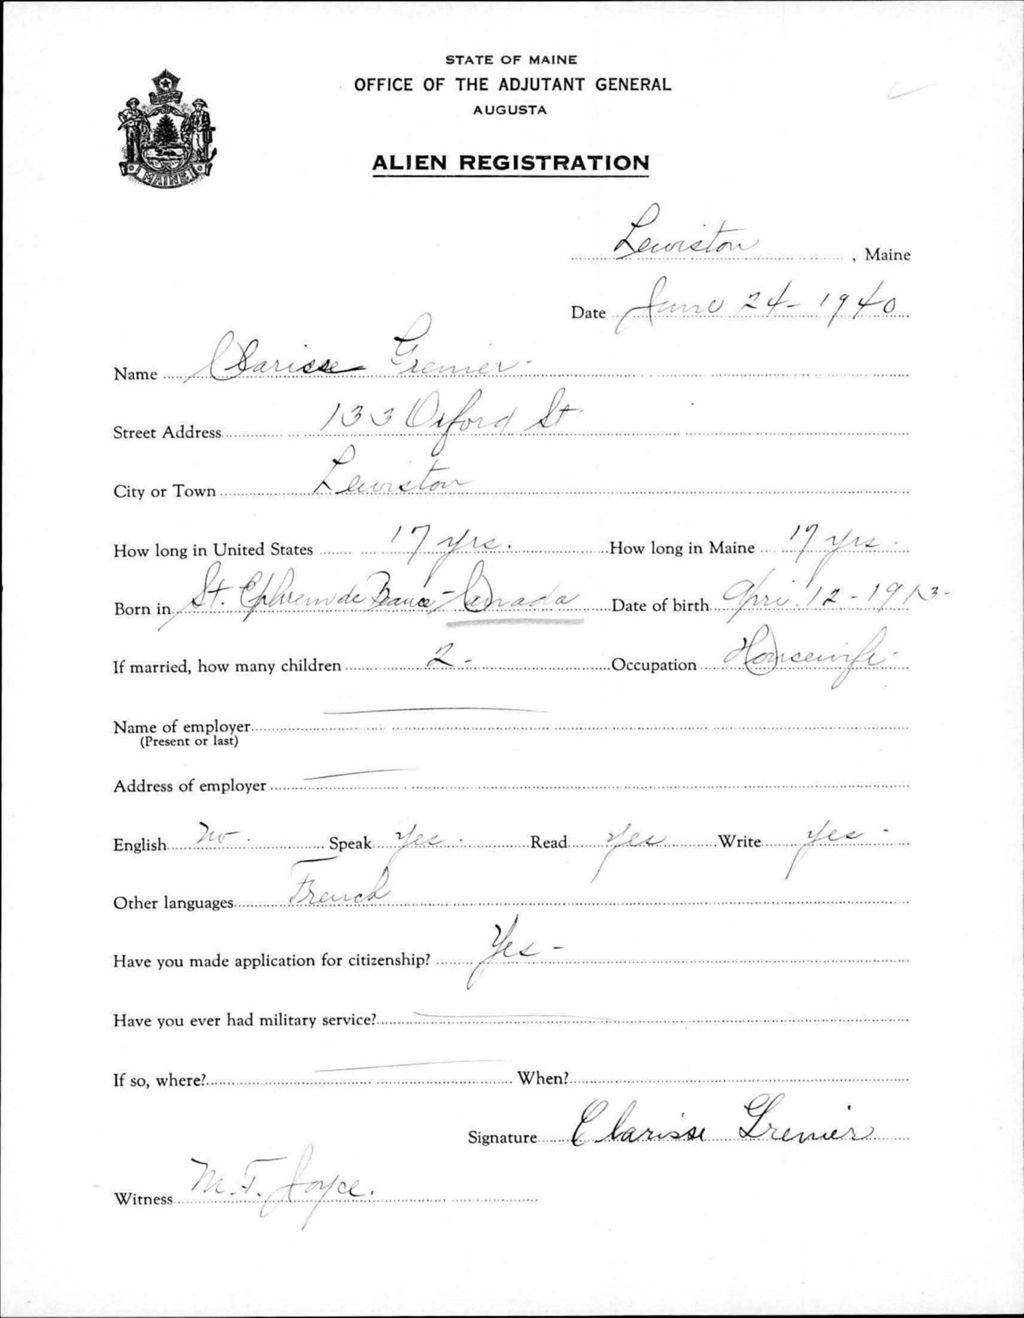 STATE OF MAINE
OFFICE OF THE ADJUTANT GENERAL
AUGUSTA
ALIEN REGISTRATION
MAINE
Lewiston, Maine
Date June 24 - 1940
Name Clarisse Grenier -
Street Address 133 Oxford St
City or Town Lewiston
How long in United States 17 yrs. How long in Maine 17 yrs -
Born in St. Ephrem de Beauce - Canada Date of birth Apri. 12 - 1913 -
If married, how many children 2 - Occupation Housewife -
Name of employer
(Present or last)
Address of employer
English No - Speak Yes - Read Yes Write Yes -
Other languages French
Have you made application for citizenship? Yes -
Have you ever had military service?
If so, where? When?
Signature Clarisse Grenier
Witness M. F. Joyce.